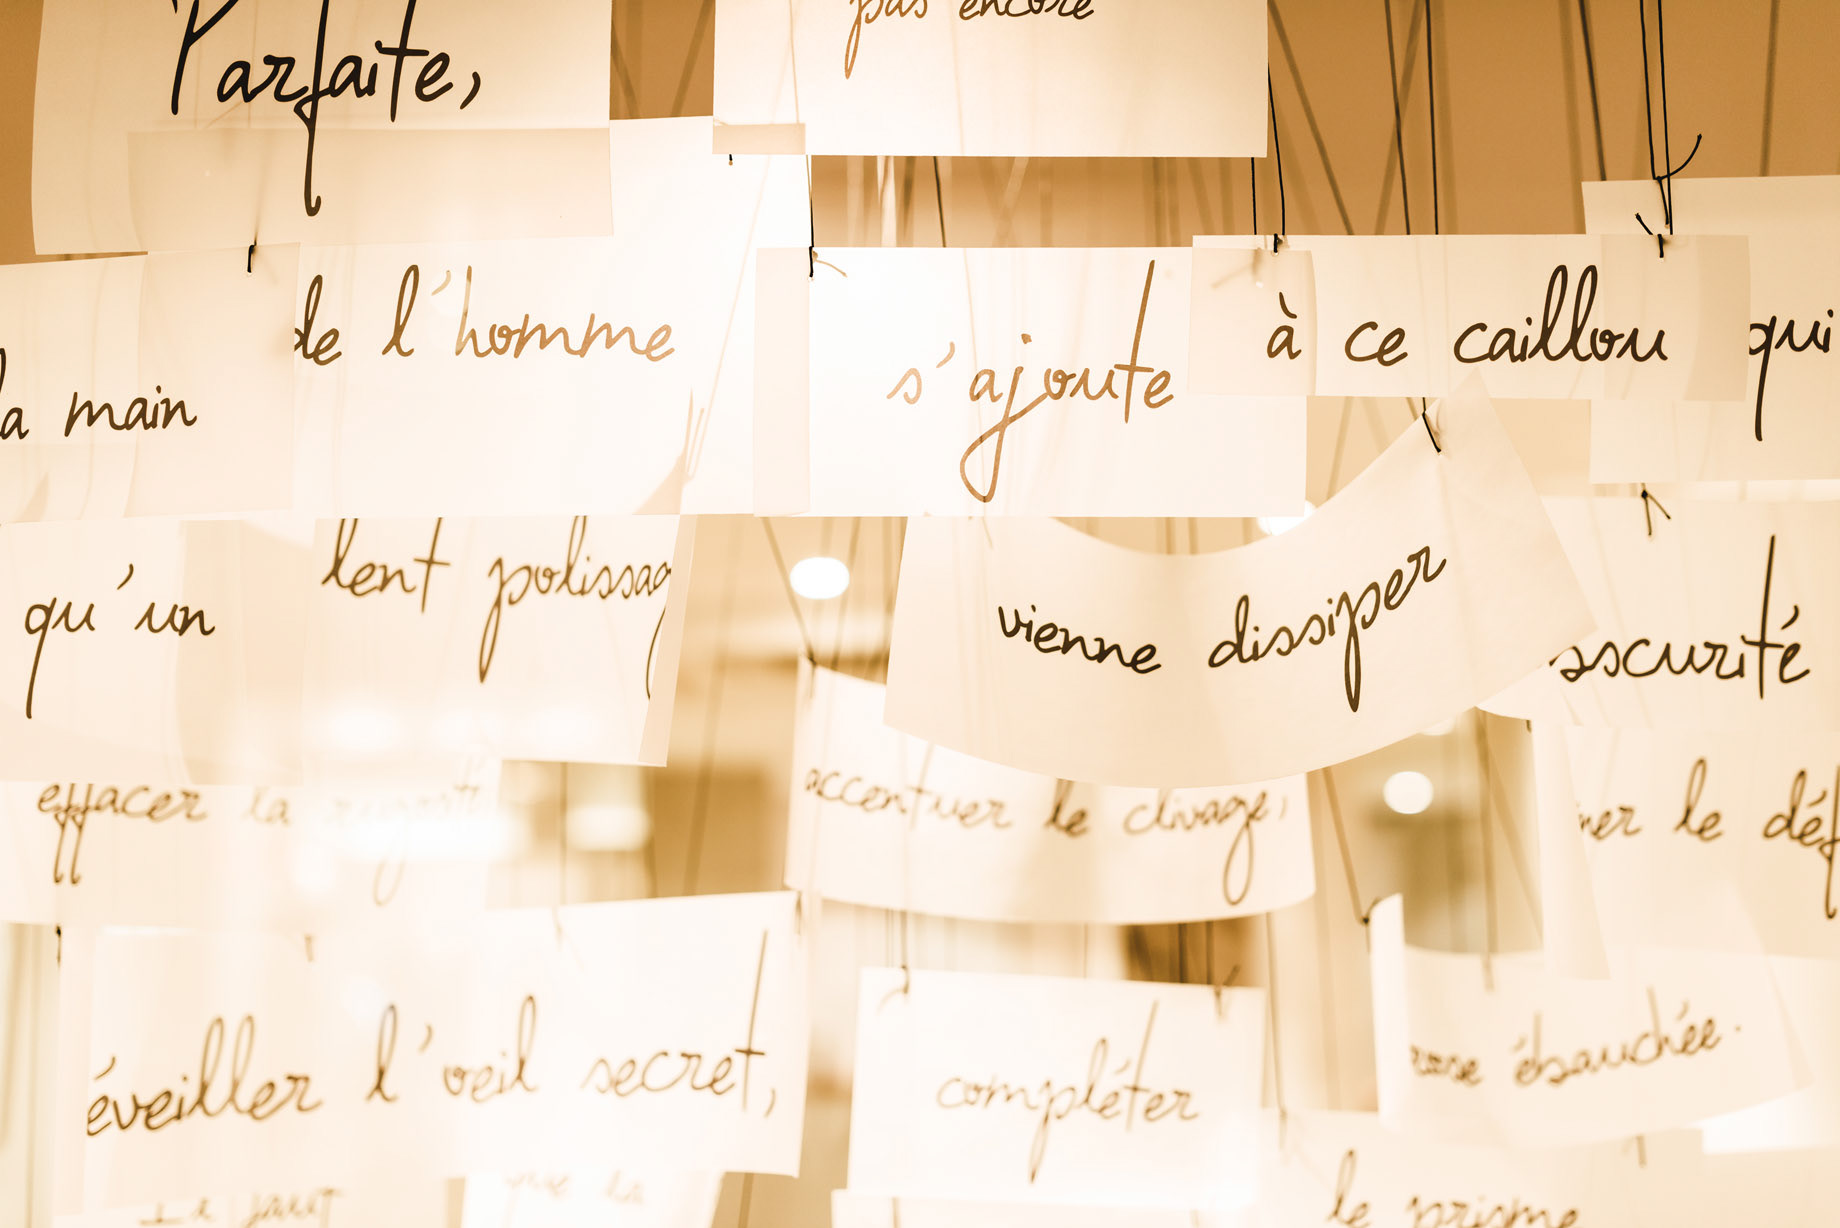 Parfaite,
pas encore
la main
de l'homme
s'ajoute
à ce caillou
qui
qu'un
lent polissag
vienne dissiper
scurité
effacer la
accentuer le clivage,
ner le déf
éveiller l'oeil secret,
compléter
rose ébauchée.
que la
le prisme